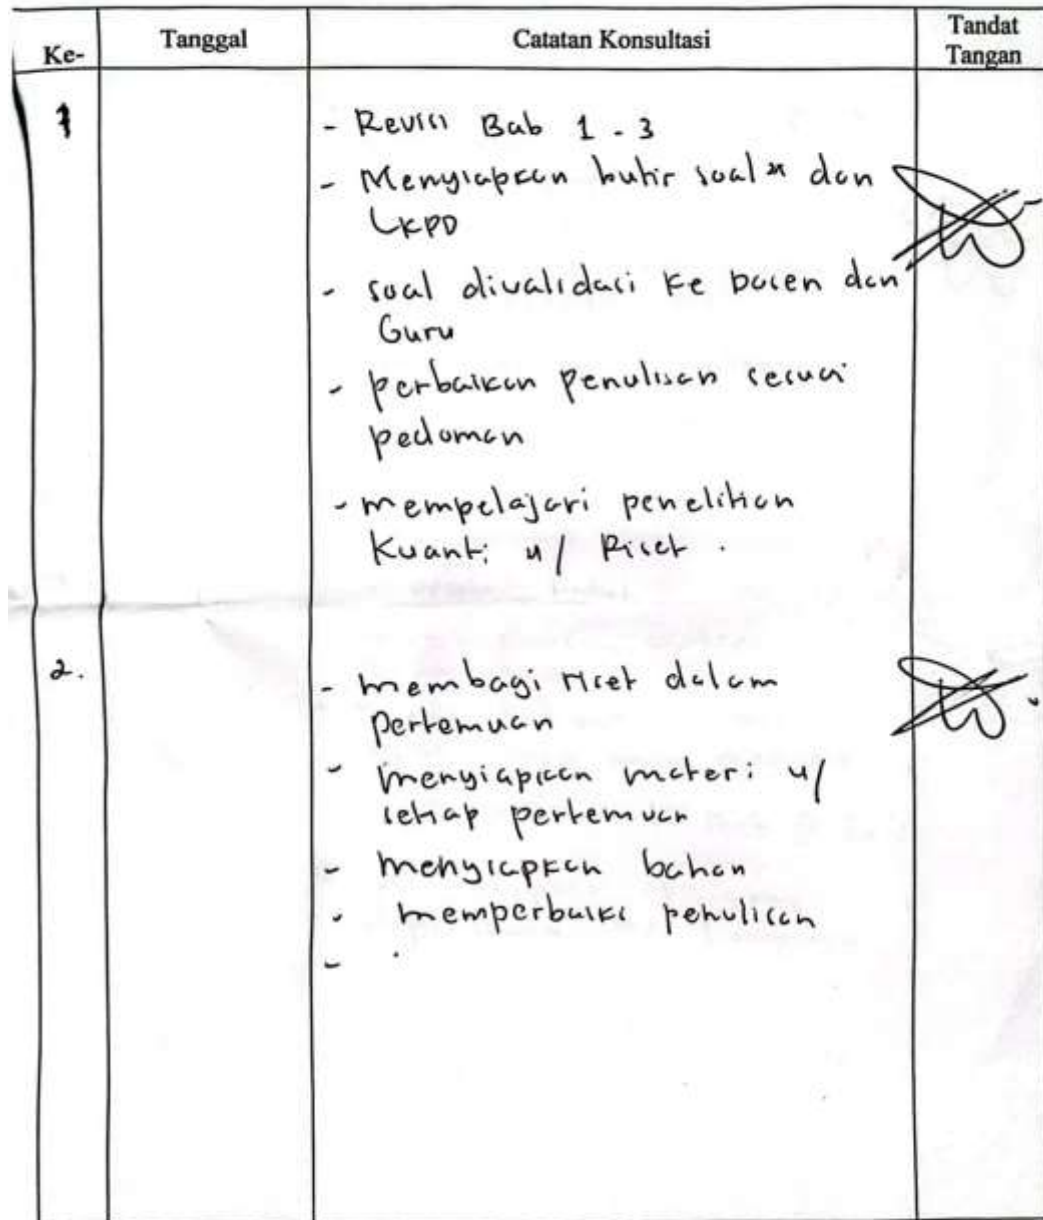 Ke-
Tanggal
Catatan Konsultasi
Tandat
Tangan
1
- Revisi Bab 1 - 3
- Menyiapkan butir soal" dan
LKPD
- soal divalidasi ke Dosen dan
Guru
- perbaikan penulisan sesuai
pedoman
- mempelajari penelitian
Kuanti u/ Riset .
2.
- membagi riset dalam
pertemuan
- menyiapkan materi u/
setiap pertemuan
- menyiapkan bahan
- memperbaiki penulisan
- .